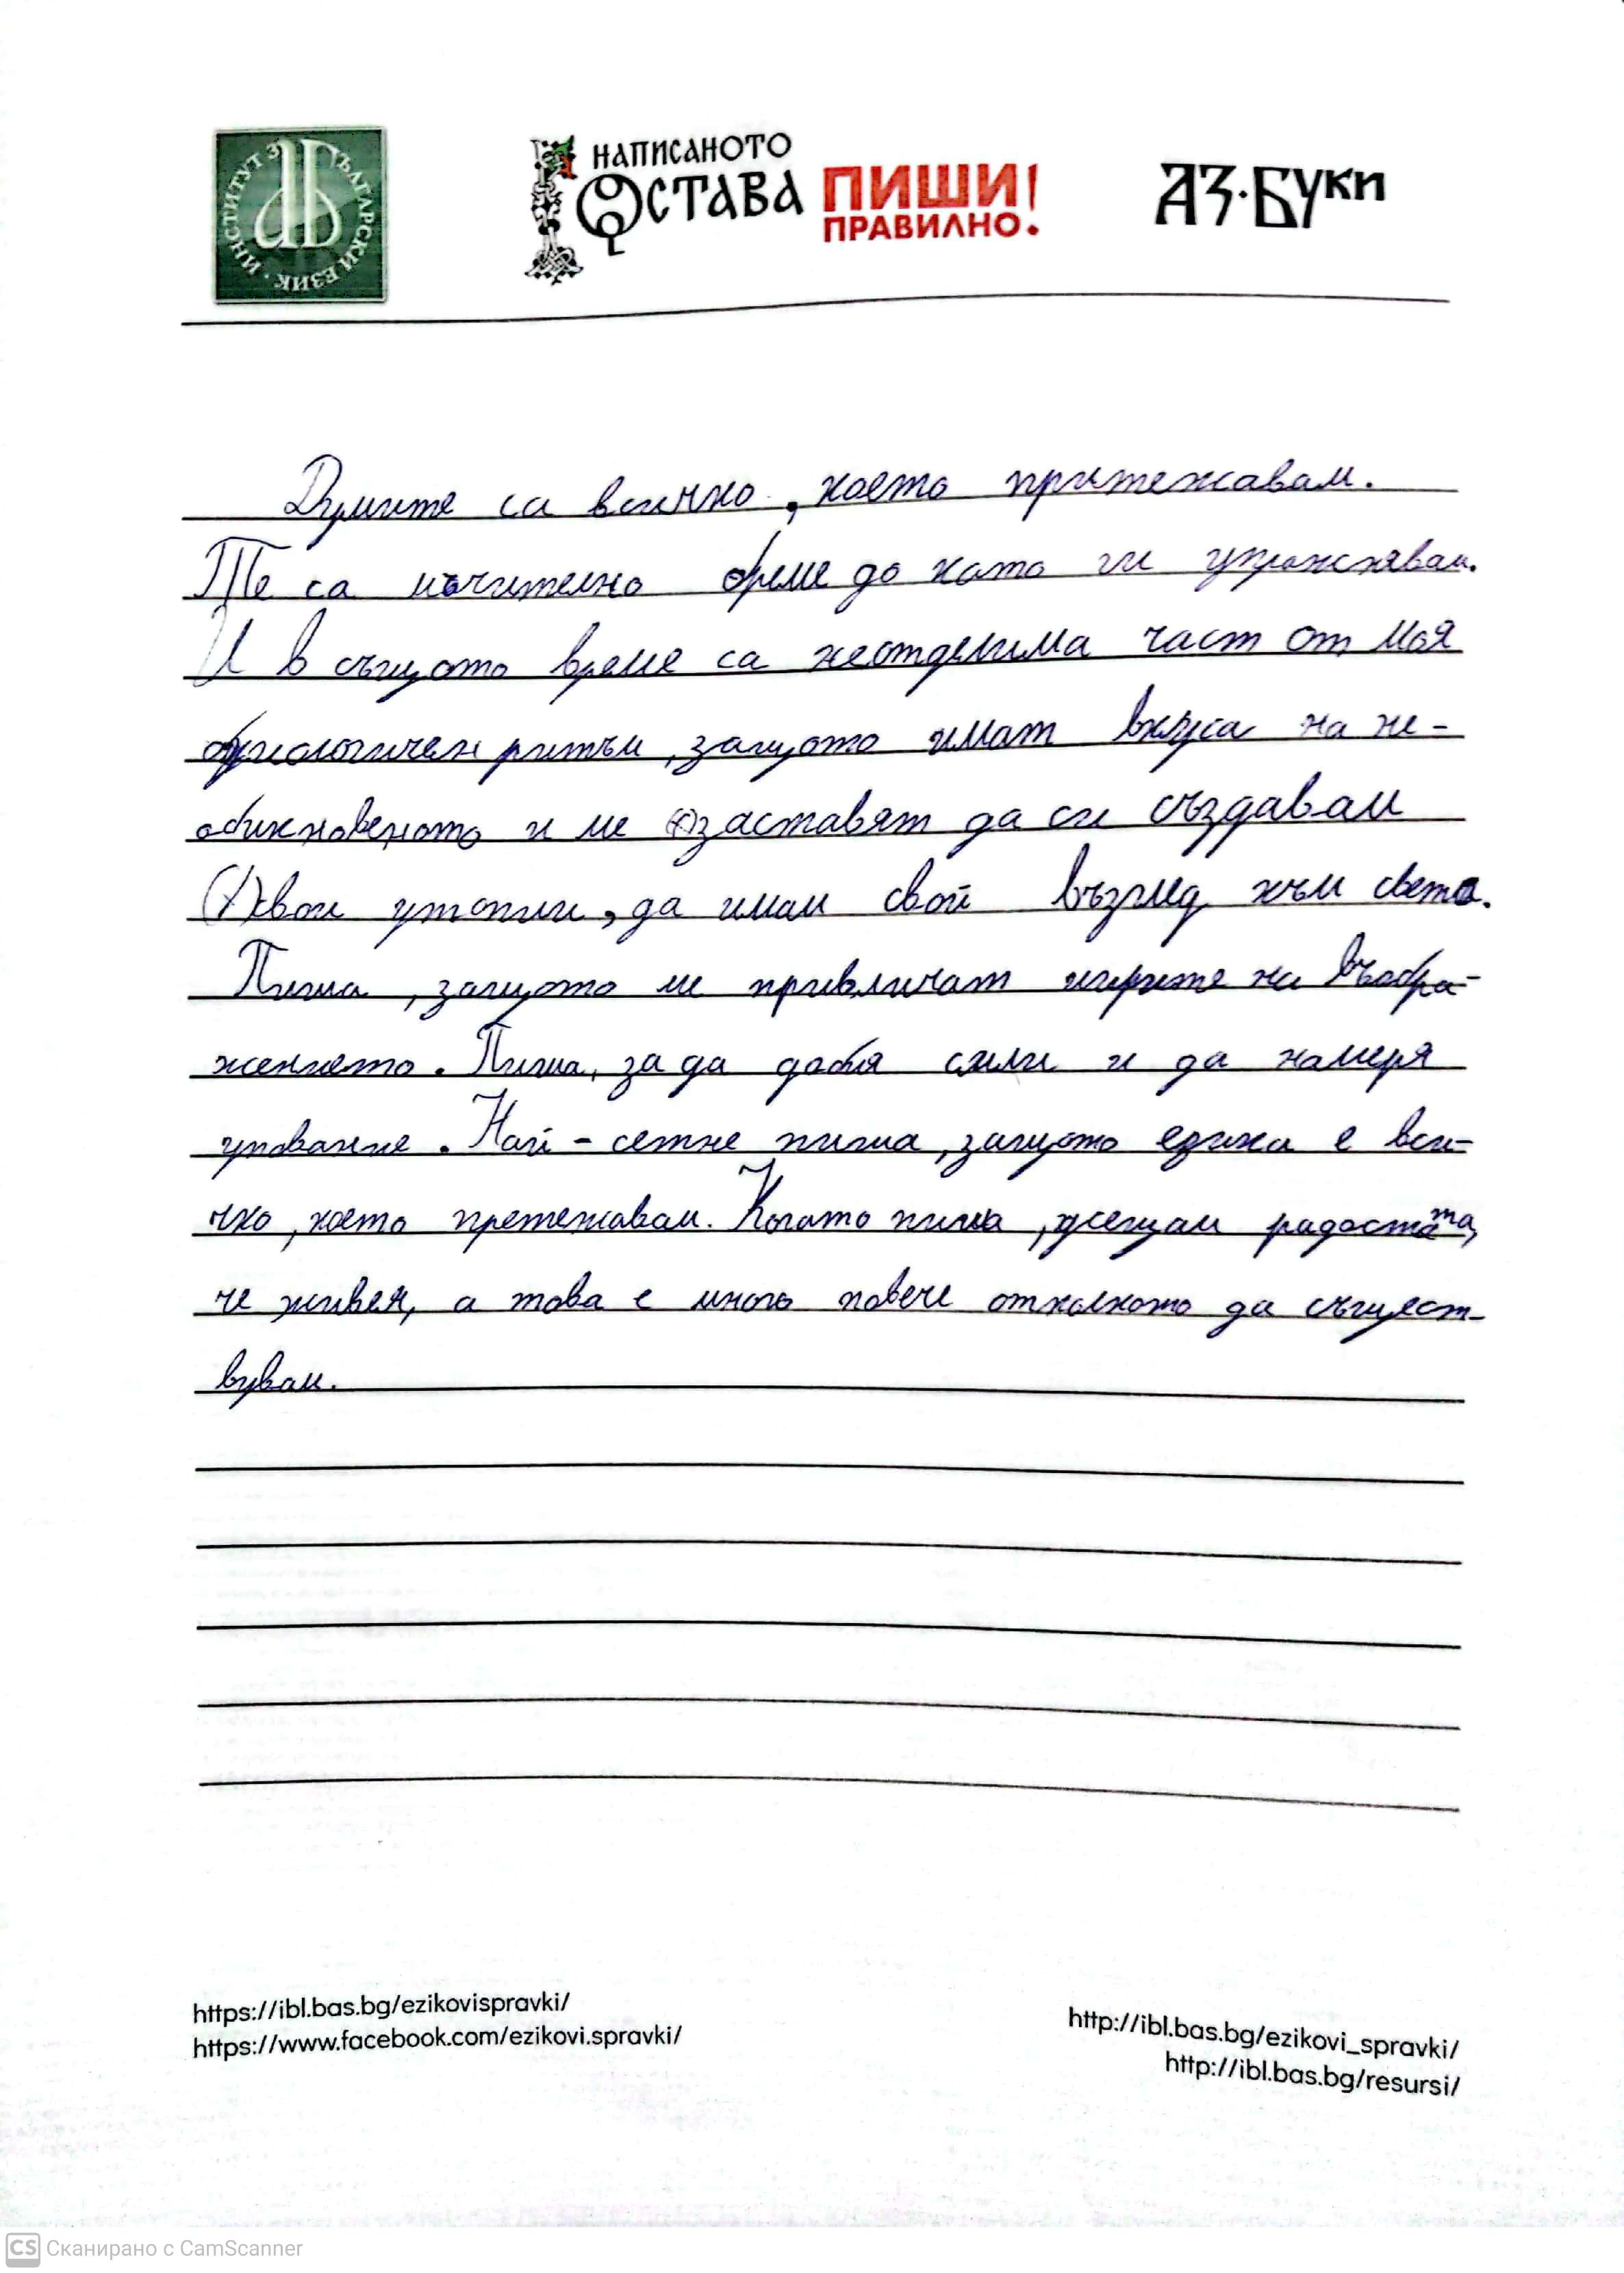 ИНСТИТУТ ЗА БЪЛГАРСКИ ЕЗИК
НАПИСАНОТО
ОСТАВА
ПИШИ!
ПРАВИЛНО!
АЗ·БУКИ
Думите са всичко, което притежавам.
Те са мъчително бреме до като ги упражнявам.
И в същото време са неотделима част от моя
физиологичен ритъм, защото имат вкуса на не-
обикновеното и ме заставят да си създавам
свои утопии, да имам свой възглед към света.
Пиша, защото ме привличат игрите на въобра-
жението. Пиша, за да добия сили и да намеря
упование. Най-сетне пиша, защото езика е вси-
чко, което претежавам. Когато пиша, усещам радостта,
че живея, а това е много повече отколкото да същест-
вувам.
https://ibl.bas.bg/ezikovispravki/
https://www.facebook.com/ezikovi.spravki/
http://ibl.bas.bg/ezikovi_spravki/
http://ibl.bas.bg/resursi/
CS Сканирано с CamScanner